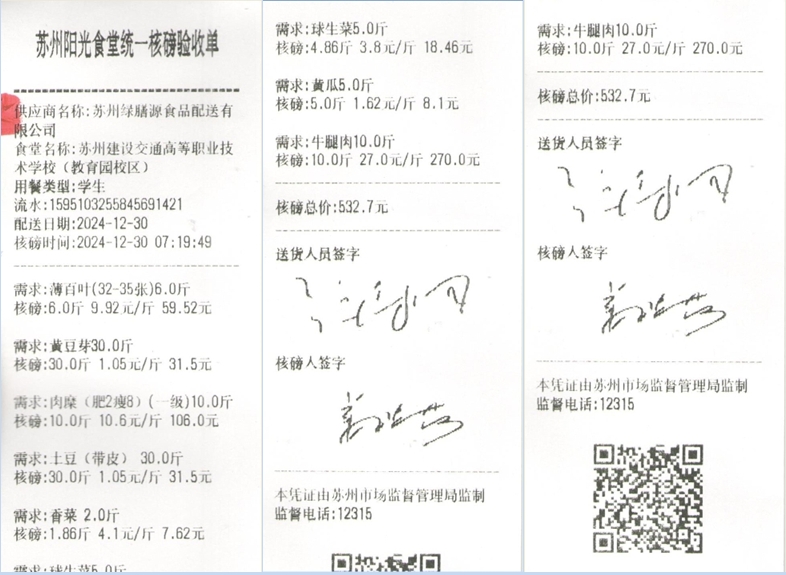 苏州阳光食堂统一核磅验收单
供应商名称:苏州绿膳源食品配送有
限公司
食堂名称:苏州建设交通高等职业技
术学校（教育园校区）
用餐类型:学生
流水:1595103255845691421
配送日期:2024-12-30
核磅时间:2024-12-30 07:19:49
需求:薄百叶(32-35张)6.0斤
核磅:6.0斤 9.92元/斤 59.52元
需求:黄豆芽30.0斤
核磅:30.0斤 1.05元/斤 31.5元
需求:肉糜（肥2瘦8）(一级)10.0斤
核磅:10.0斤 10.6元/斤 106.0元
需求:土豆（带皮） 30.0斤
核磅:30.0斤 1.05元/斤 31.5元
需求:香菜 2.0斤
核磅:1.86斤 4.1元/斤 7.62元
需求:球生菜5.0斤
需求:球生菜5.0斤
核磅:4.86斤 3.8元/斤 18.46元
需求:黄瓜5.0斤
核磅:5.0斤 1.62元/斤 8.1元
需求:牛腿肉10.0斤
核磅:10.0斤 27.0元/斤 270.0元
核磅总价:532.7元
送货人员签字
核磅人签字
本凭证由苏州市场监督管理局监制
监督电话:12315
需求:牛腿肉10.0斤
核磅:10.0斤 27.0元/斤 270.0元
核磅总价:532.7元
送货人员签字
核磅人签字
本凭证由苏州市场监督管理局监制
监督电话:12315